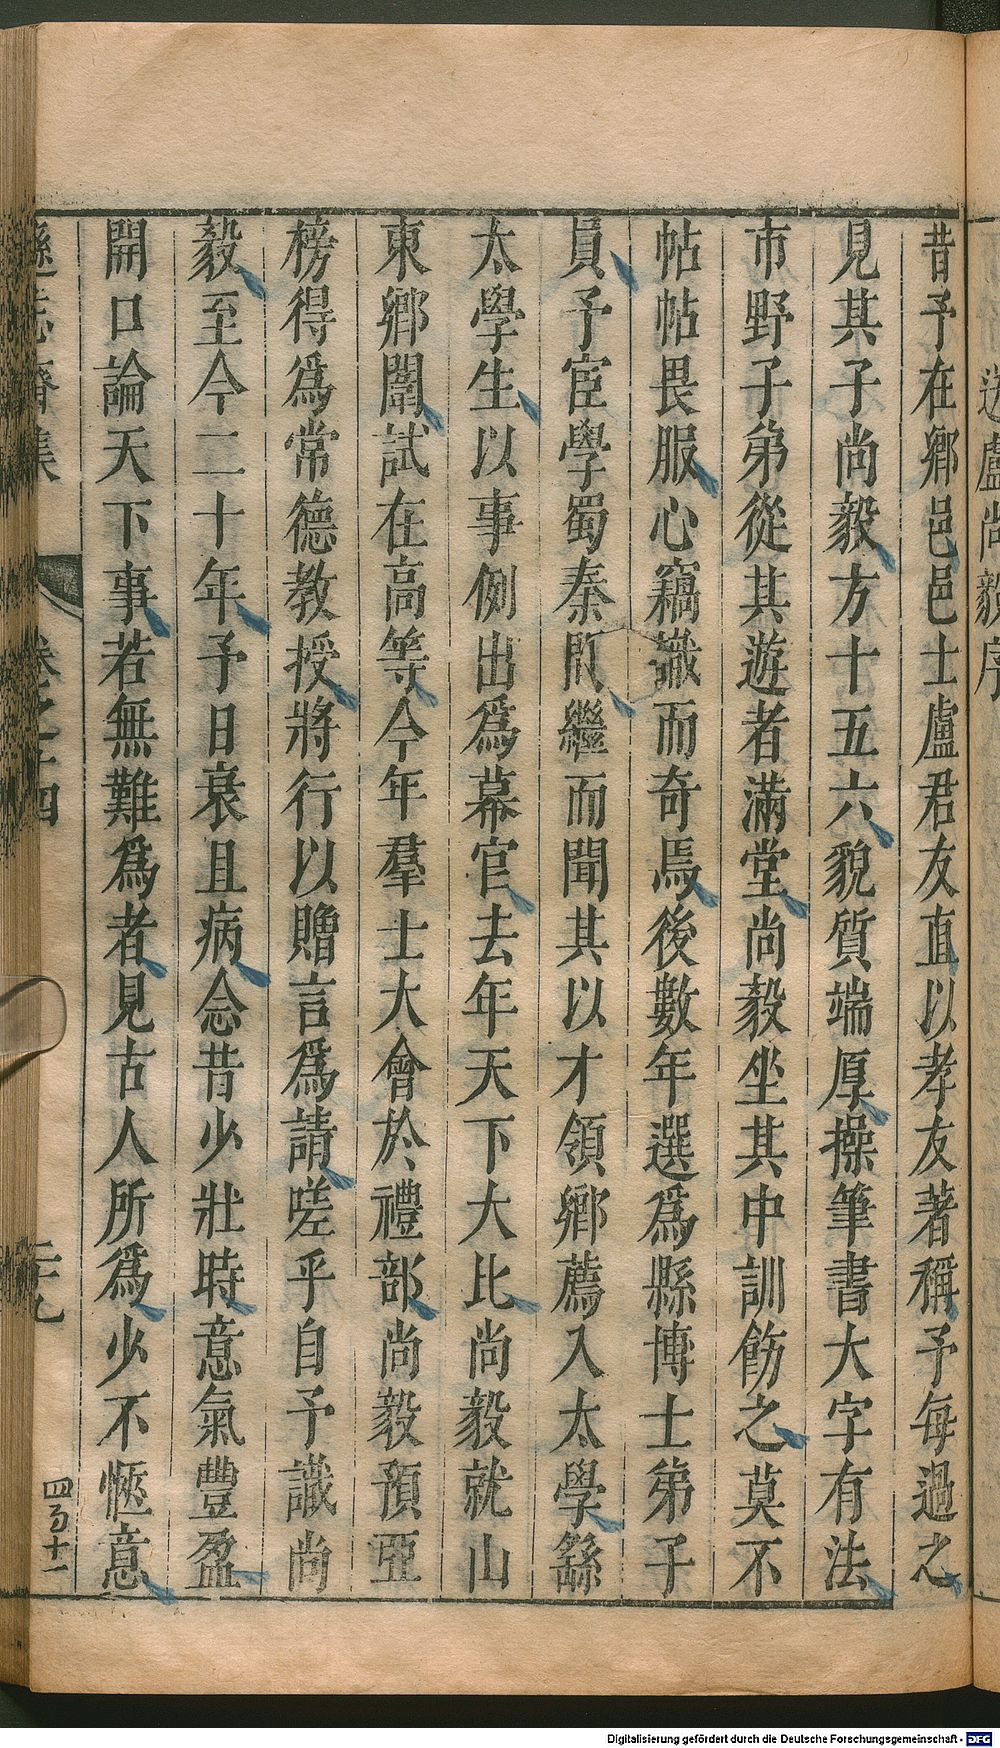 送盧尚毅序
昔予在鄉邑邑士盧君友直以孝友著稱予每過之
見其子尚毅方十五六貌質端厚操筆書大字有法
市野子弟從其遊者滿堂尚毅坐其中訓飭之莫不
帖帖畏服心竊識而奇焉後數年選爲縣博士弟子
員予宦學蜀秦間繼而聞其以才領鄉薦入太學繇
太學生以事例出爲幕官去年天下大比尚毅就山
東鄉闈試在高等今年羣士大會於禮部尚毅預亞
榜得爲常德教授將行以贈言爲請嗟乎自予識尚
毅至今二十年予日衰且病念昔少壯時意氣豐盈
開口論天下事若無難爲者見古人所爲少不愜意
遜志齋集 卷之十四 二十九 四百十一
Digitalisierung gefördert durch die Deutsche Forschungsgemeinschaft - DFG